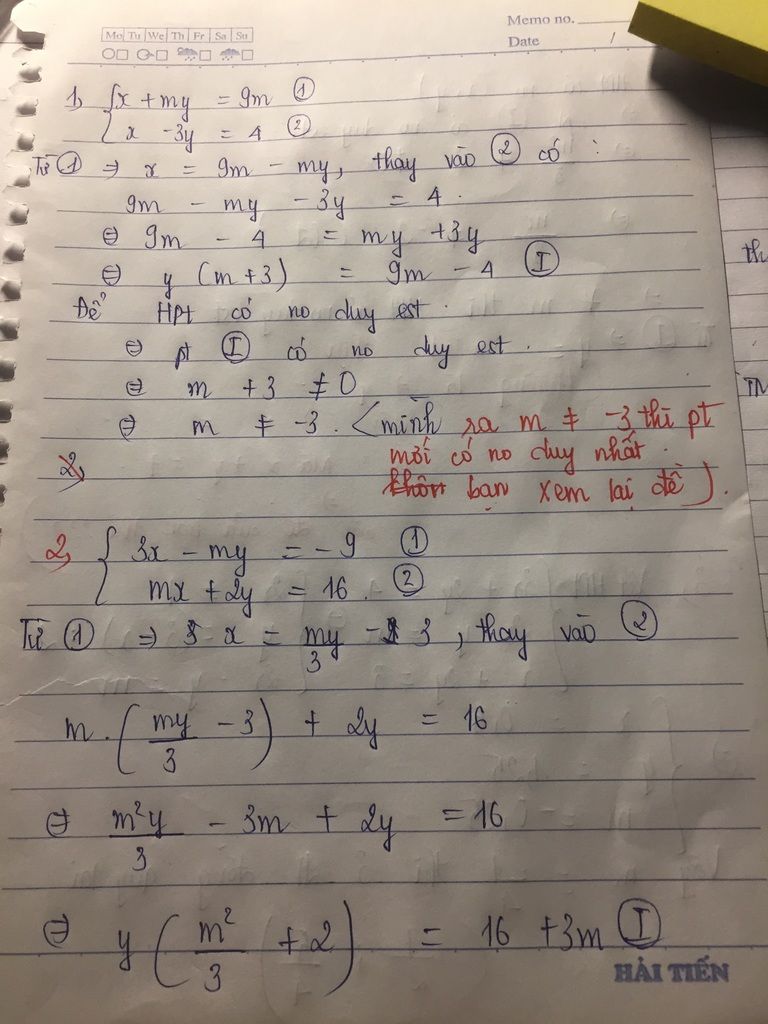 Memo no.
Mo Tu We Th Fr Sa Su
Date /
1, { x + my = 9m ①
x - 3y = 4 ②
Từ ① ⇒ x = 9m - my, thay vào ② có :
9m - my - 3y = 4.
⇔ 9m - 4 = my + 3y
⇔ y (m+3) = 9m - 4 Ⓘ
Để HPt có no duy est.
⇔ pt Ⓘ có no duy est.
⇔ m + 3 ≠ 0
⇔ m ≠ -3. < mình ra m ≠ -3 thì pt
mới có no duy nhất.
2,
khôn bạn xem lại đề ).
2, { 3x - my = -9 ①
mx + 2y = 16. ②
Từ ① ⇒ x = my/3 - 3, thay vào ②
m. (my/3 - 3) + 2y = 16
⇔ m²y/3 - 3m + 2y = 16
⇔ y (m²/3 + 2) = 16 + 3m Ⓘ
HẢI TIẾN